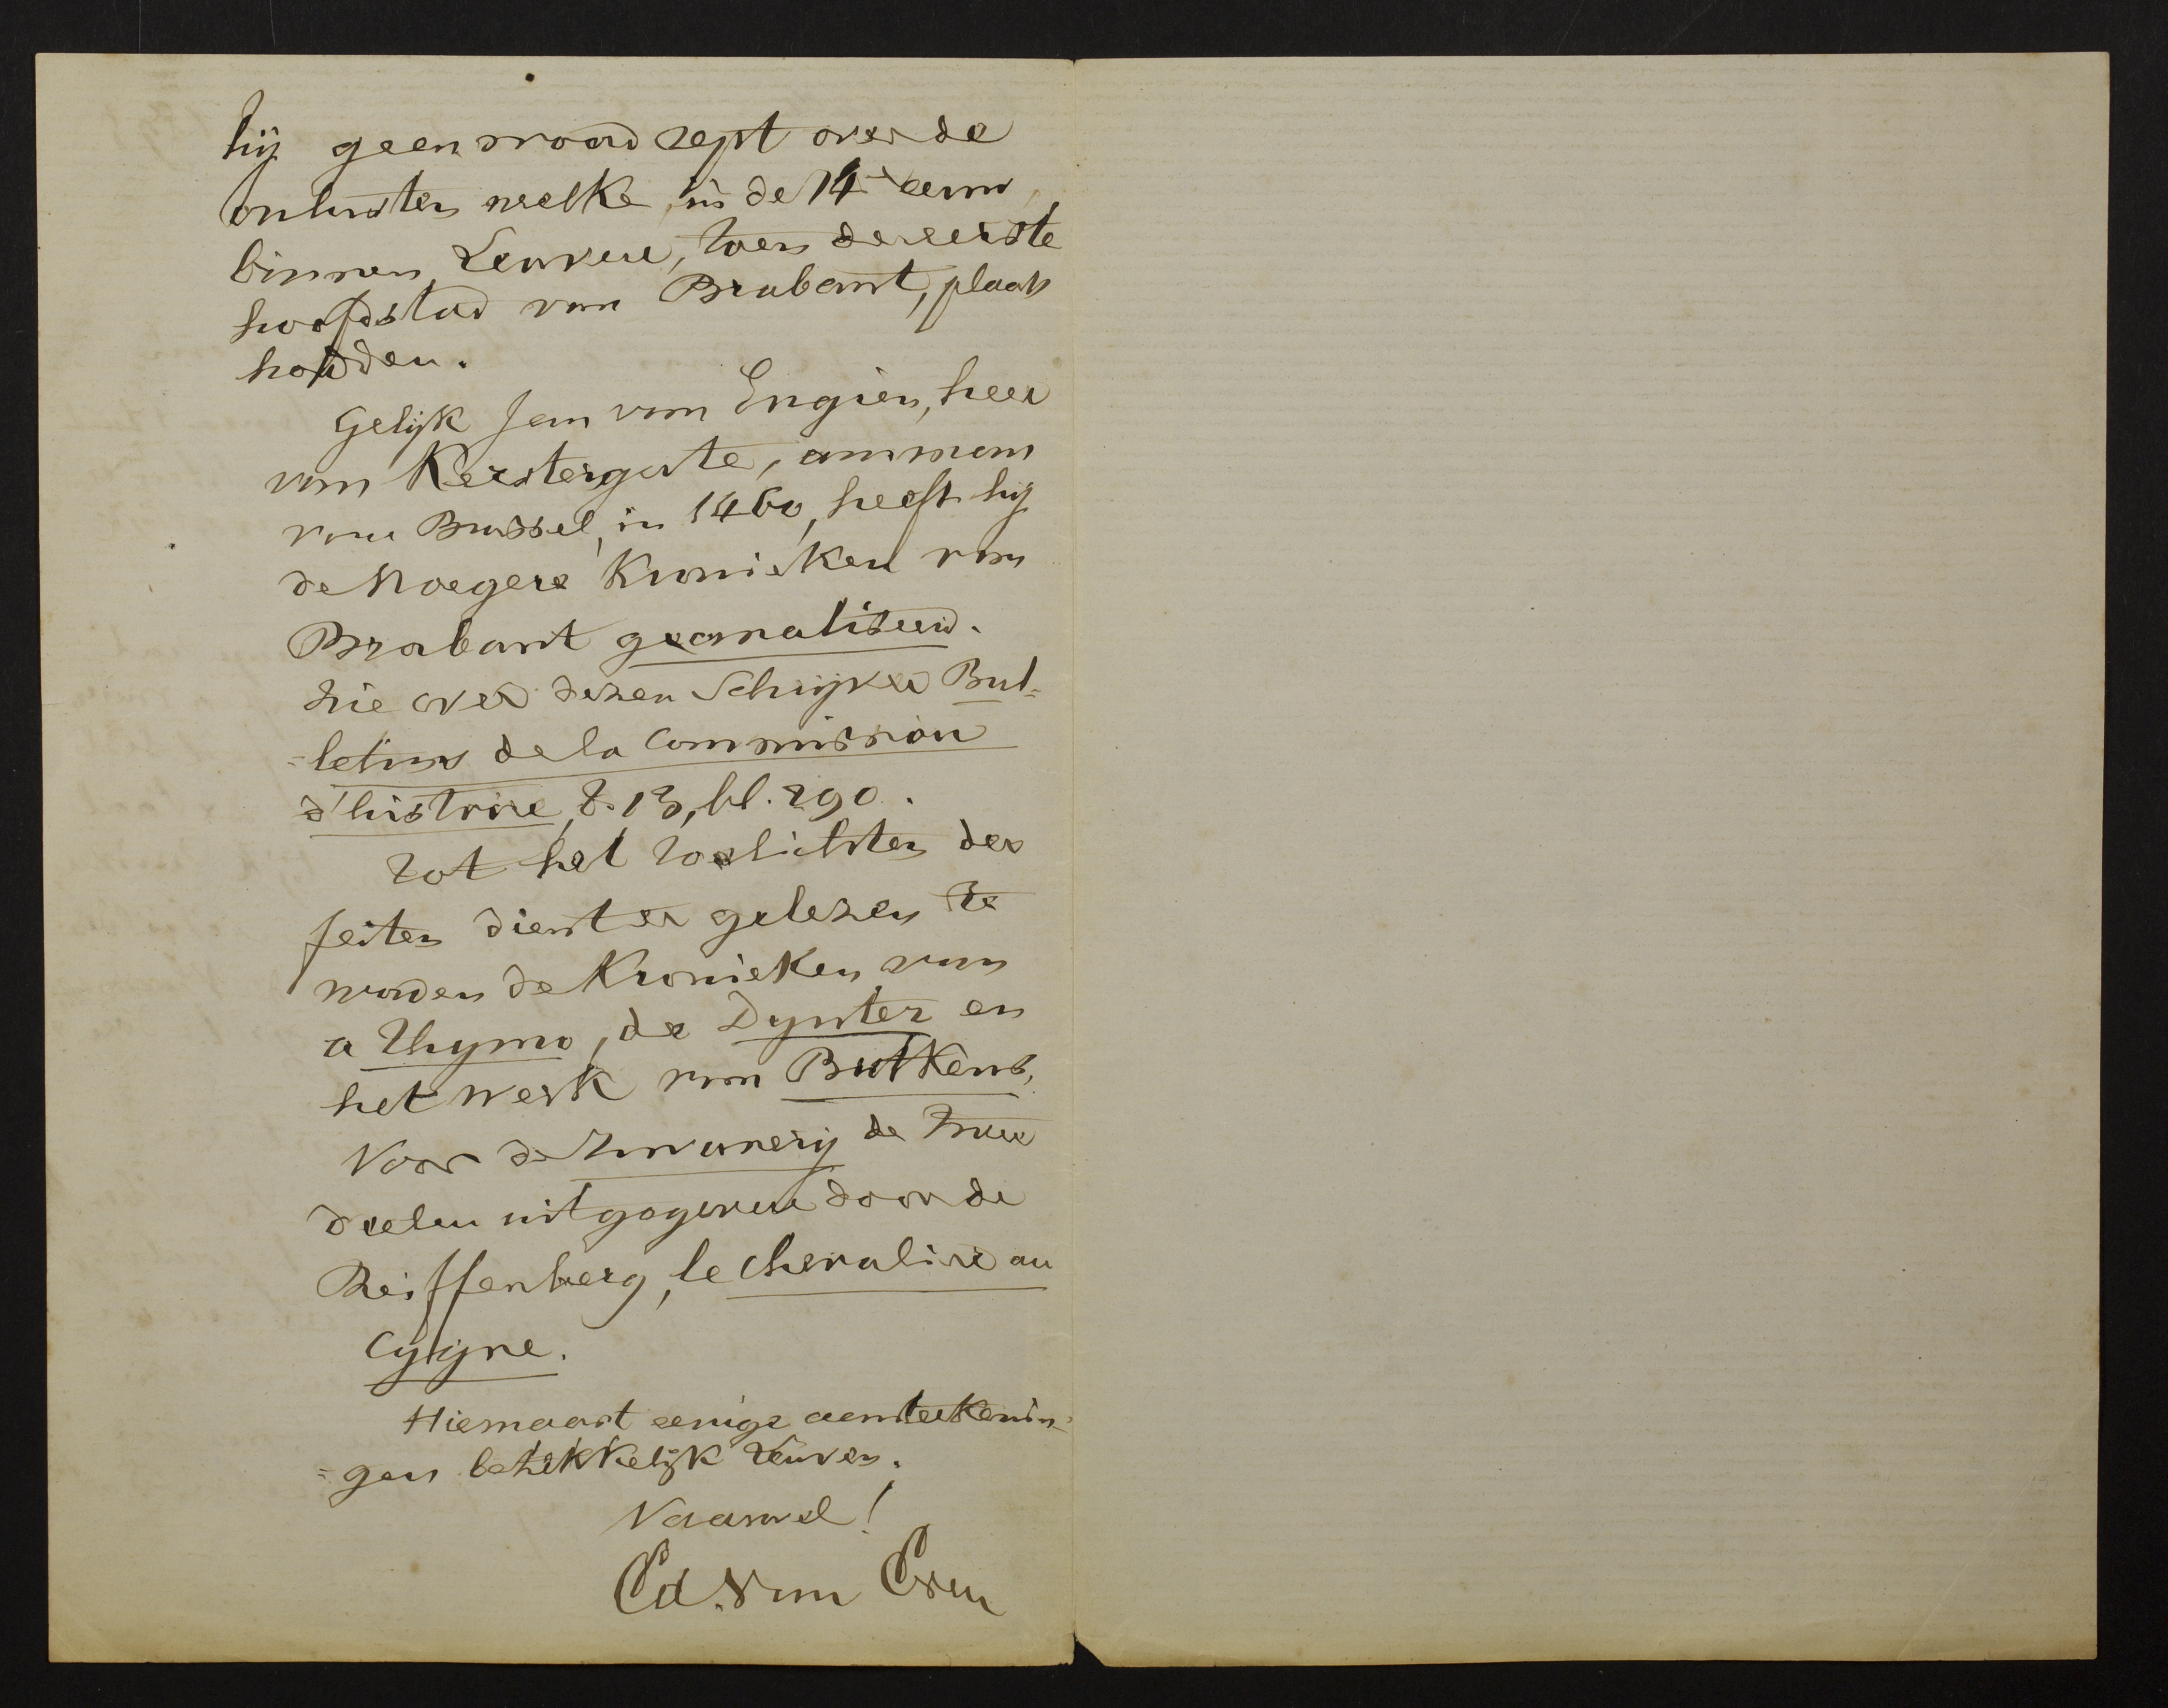 hij geen woord rept over de
onlusten welke, in de 14e eeuw,
binnen Leuven, toen de eerste
hoofdstad van Brabant, plaats
hadden.
Gelijk Jan van Engien, heer
van Kestergate, amman
van Brussel, in 1460, heeft hij
de vroegere Kronieken van
Brabant geanaliseerd.
Zie over dezen Schrijver Bul=
=letins de la Commission
d'histoire, t. 13, bl. 290.
Tot het toelichten der
feiten dient er gelezen te
worden de Kronieken van
a Thymo, de Dynter en
het werk van Butkens,
Voor de Zwanerij de twee
deelen uitgegeven door de
Reiffenberg, le chevalier au
Cygne.
Hiernaast eenige aenteekenin=
=gen betrekkelijk Leuven.
Vaarwel!
Ed. van Even